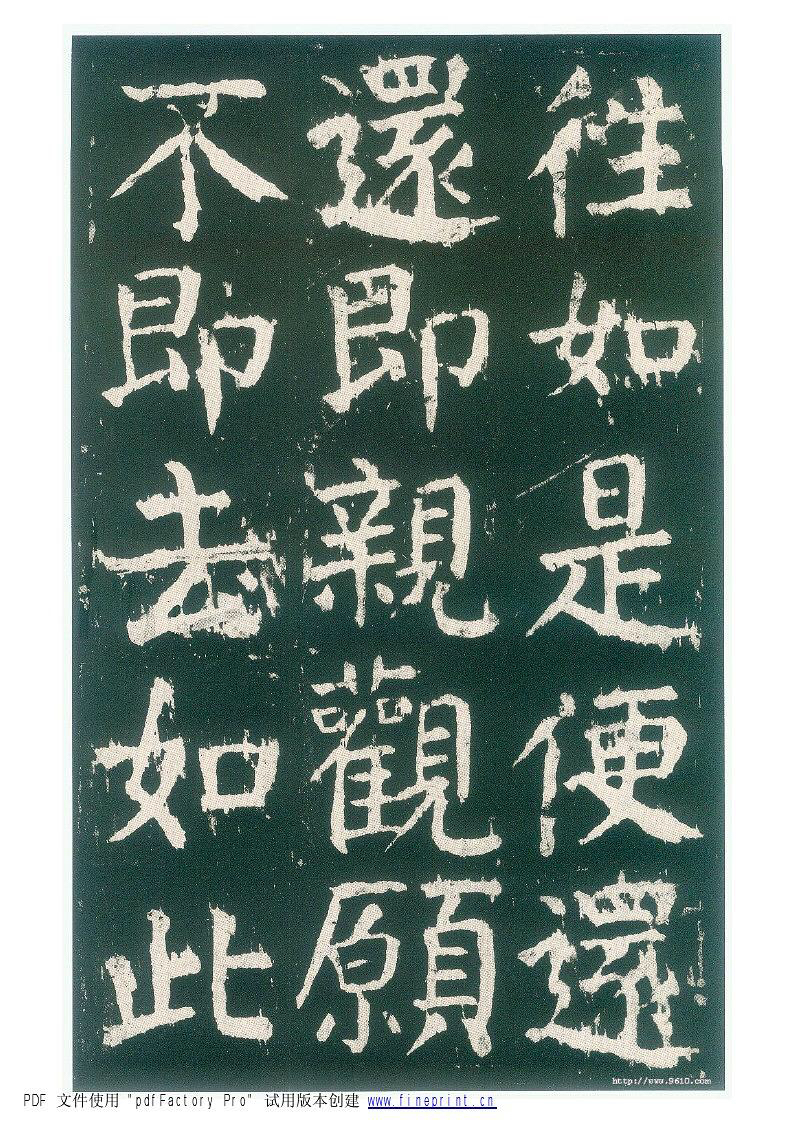 往如是便還
還即親觀願
不即去如此
http://www.9610.com
PDF 文件使用 "pdfFactory Pro" 试用版本创建 www.fineprint.cn